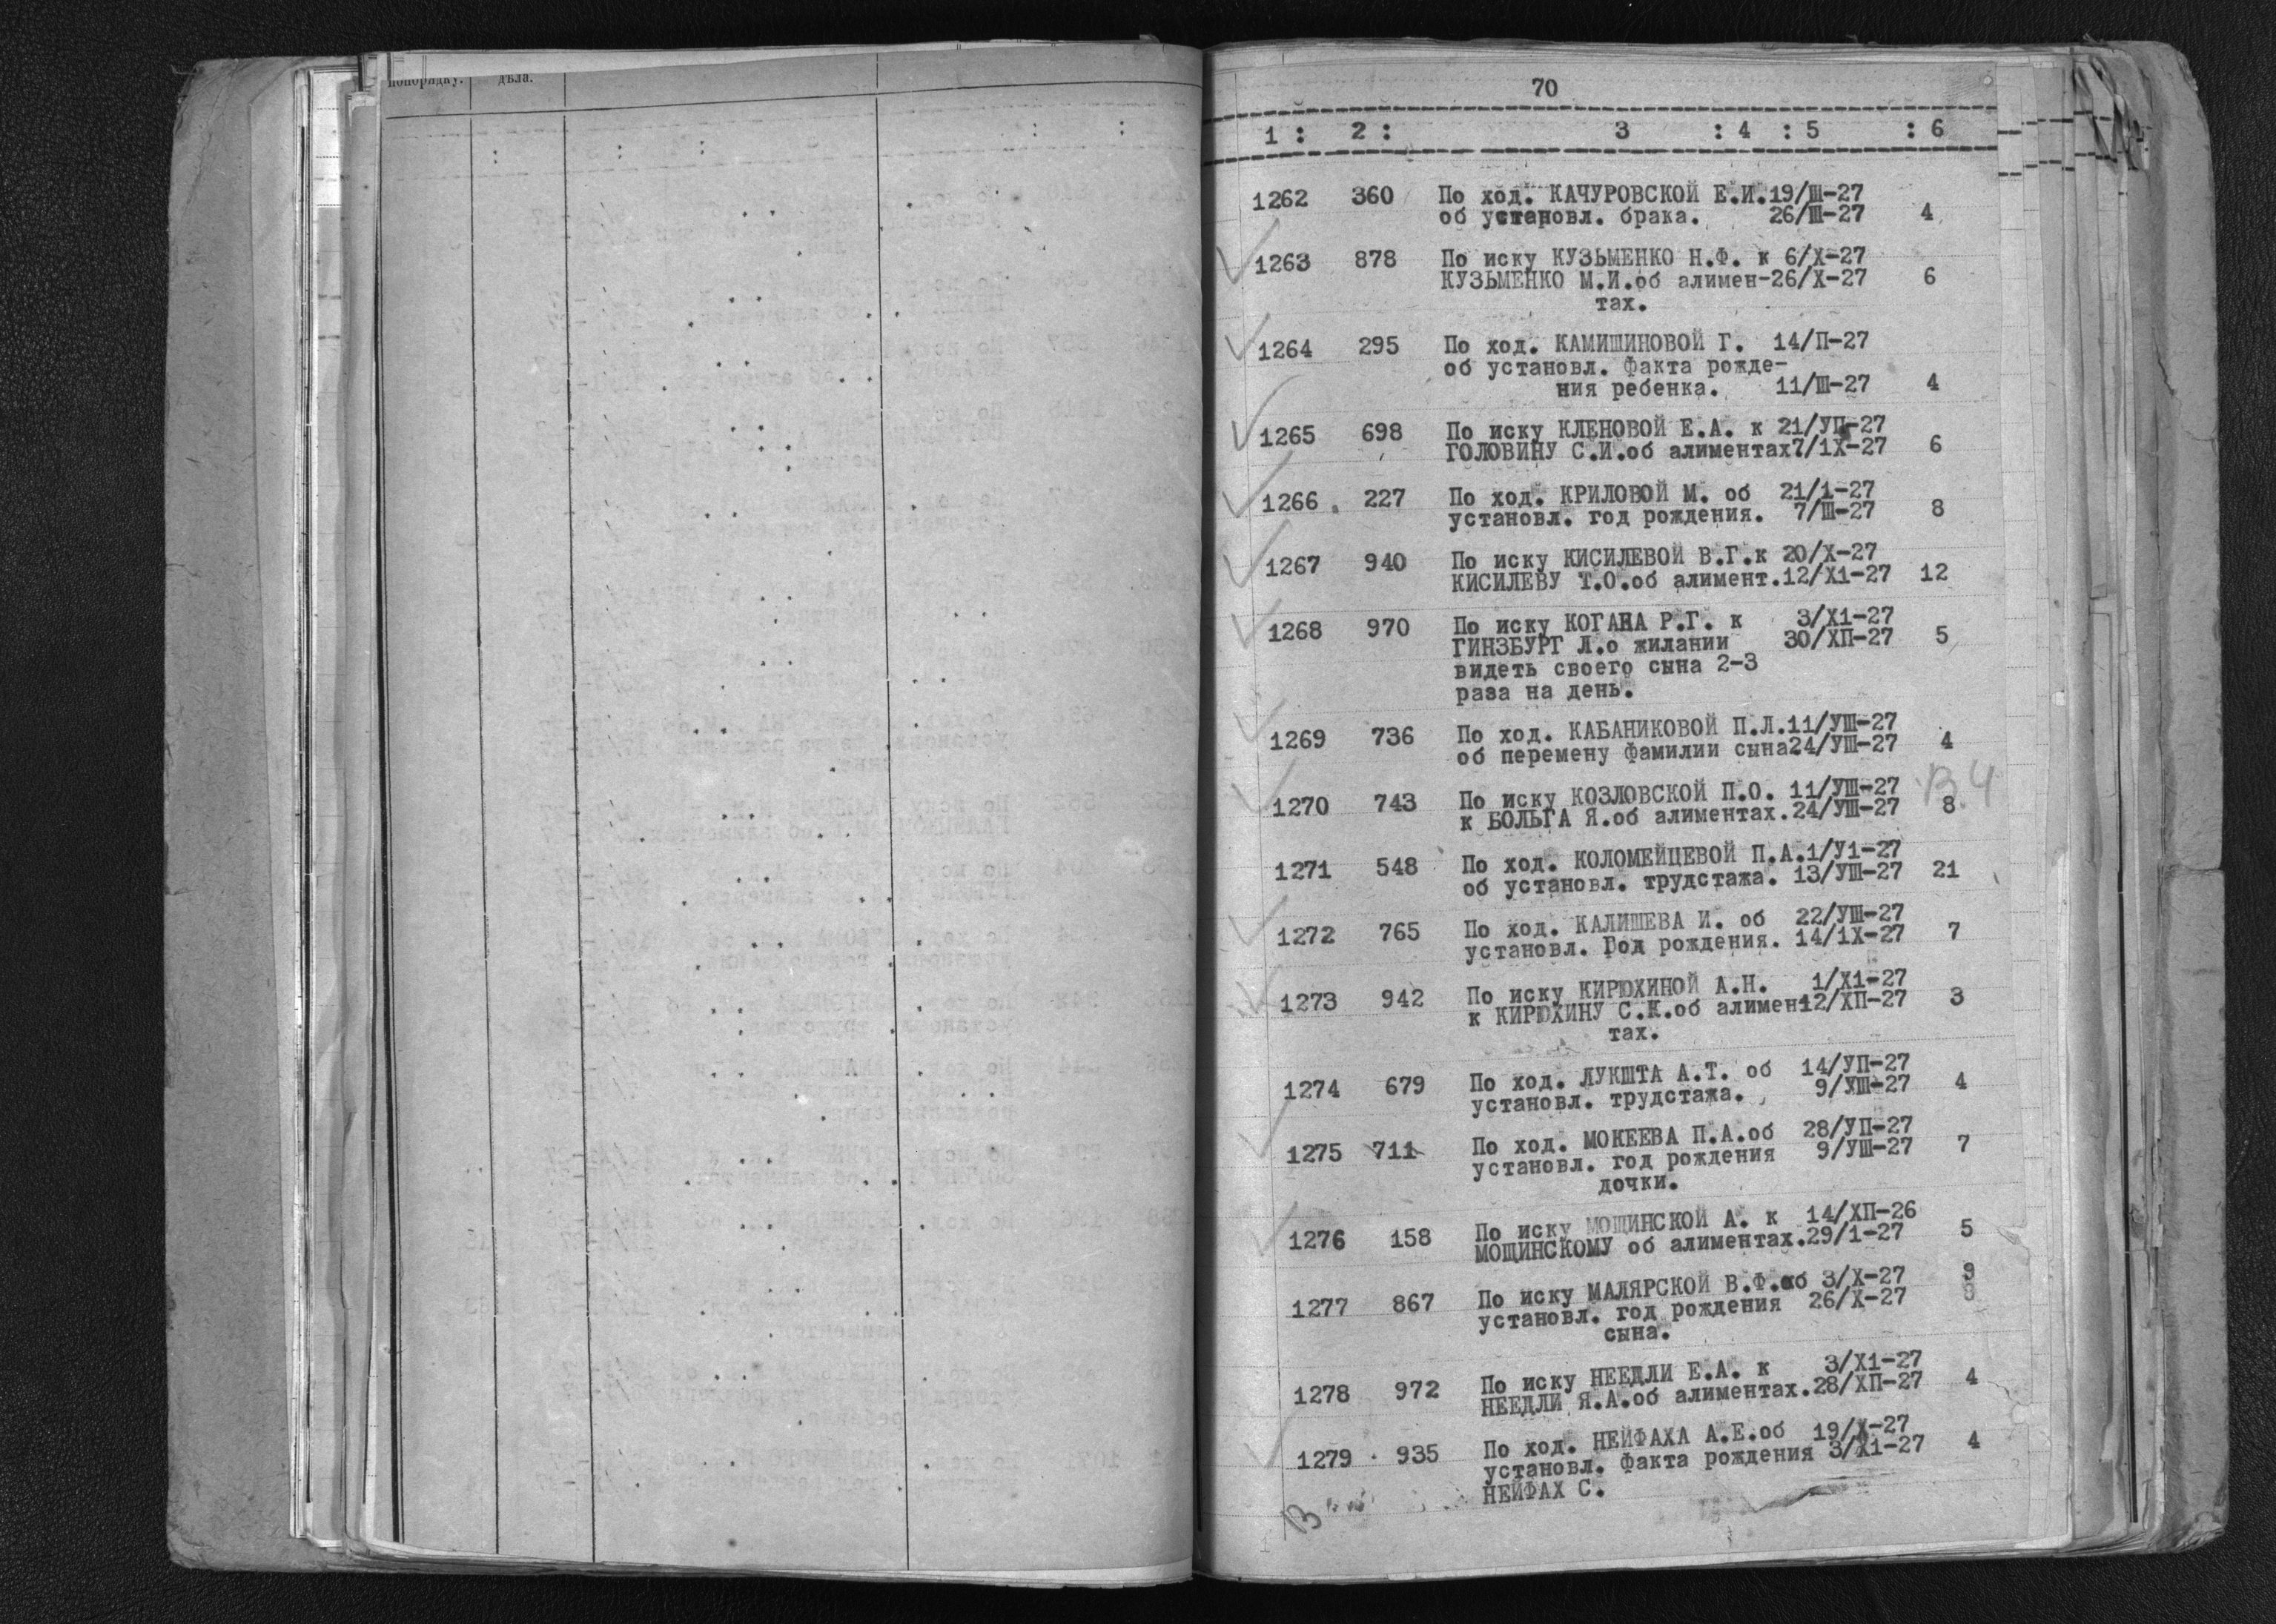 попорядку. дѣла.
70
1 : 2 : 3 : 4 : 5 : 6
1262 360 По ход. КАЧУРОВСКОЙ Е.И.19/Ш-27
об установл. брака. 26/Ш-27 4
1263 878 По иску КУЗЬМЕНКО Н.Ф. к 6/Х-27
КУЗЬМЕНКО М.И.об алимен-26/Х-27 6
тах.
1264 295 По ход. КАМИШИНОВОЙ Г. 14/П-27
об установл. Факта рожде-
ния ребенка. 11/Ш-27 4
1265 698 По иску КЛЕНОВОЙ Е.А. к 21/УП-27
ГОЛОВИНУ С.И.об алиментах7/1Х-27 6
1266 227 По ход. КРИЛОВОЙ М. об 21/1-27
установл. год рождения. 7/Ш-27 8
1267 940 По иску КИСИЛЕВОЙ В.Г.к 20/Х-27
КИСИЛЕВУ Т.О.об алимент.12/Х1-27 12
1268 970 По иску КОГАНА Р.Г. к 3/Х1-27
ГИНЗБУРГ Л.о жилании 30/ХП-27 5
видеть своего сына 2-3
раза на день.
1269 736 По ход. КАБАНИКОВОЙ П.Л.11/УШ-27
об перемену фамилии сына24/УШ-27 4
В.4
1270 743 По иску КОЗЛОВСКОЙ П.О. 11/УШ-27
к БОЛЬГА Я.об алиментах.24/УШ-27 8
1271 548 По ход. КОЛОМЕЙЦЕВОЙ П.А.1/У1-27
об установл. трудстажа. 13/УШ-27 21
1272 765 По ход. КАЛИШЕВА И. об 22/УШ-27
установл. Год рождения. 14/1Х-27 7
1273 942 По иску КИРЮХИНОЙ А.Н. 1/Х1-27
к КИРЮХИНУ С.К.об алимен12/ХП-27 3
тах.
1274 679 По ход. ЛУКШТА А.Т. об 14/УП-27
установл. трудстажа. 9/УШ-27 4
1275 711 По ход. МОКЕЕВА П.А.об 28/УП-27
установл. год рождения 9/УШ-27 7
дочки.
1276 158 По иску МОЩИНСКОЙ А. к 14/ХП-26
МОЩИНСКОМУ об алиментах.29/1-27 5
1277 867 По иску МАЛЯРСКОЙ В.Ф.об 3/Х-27 9
установл. год рождения 26/Х-27
сына.
1278 972 По иску НЕЕДЛИ Е.А. к 3/Х1-27
НЕЕДЛИ Я.А.об алиментах.28/ХП-27 4
1279 935 По ход. НЕЙФАХА А.Е.об 19/Х-27
установл. Факта рождения 3/Х1-27 4
НЕЙФАХ С.
В